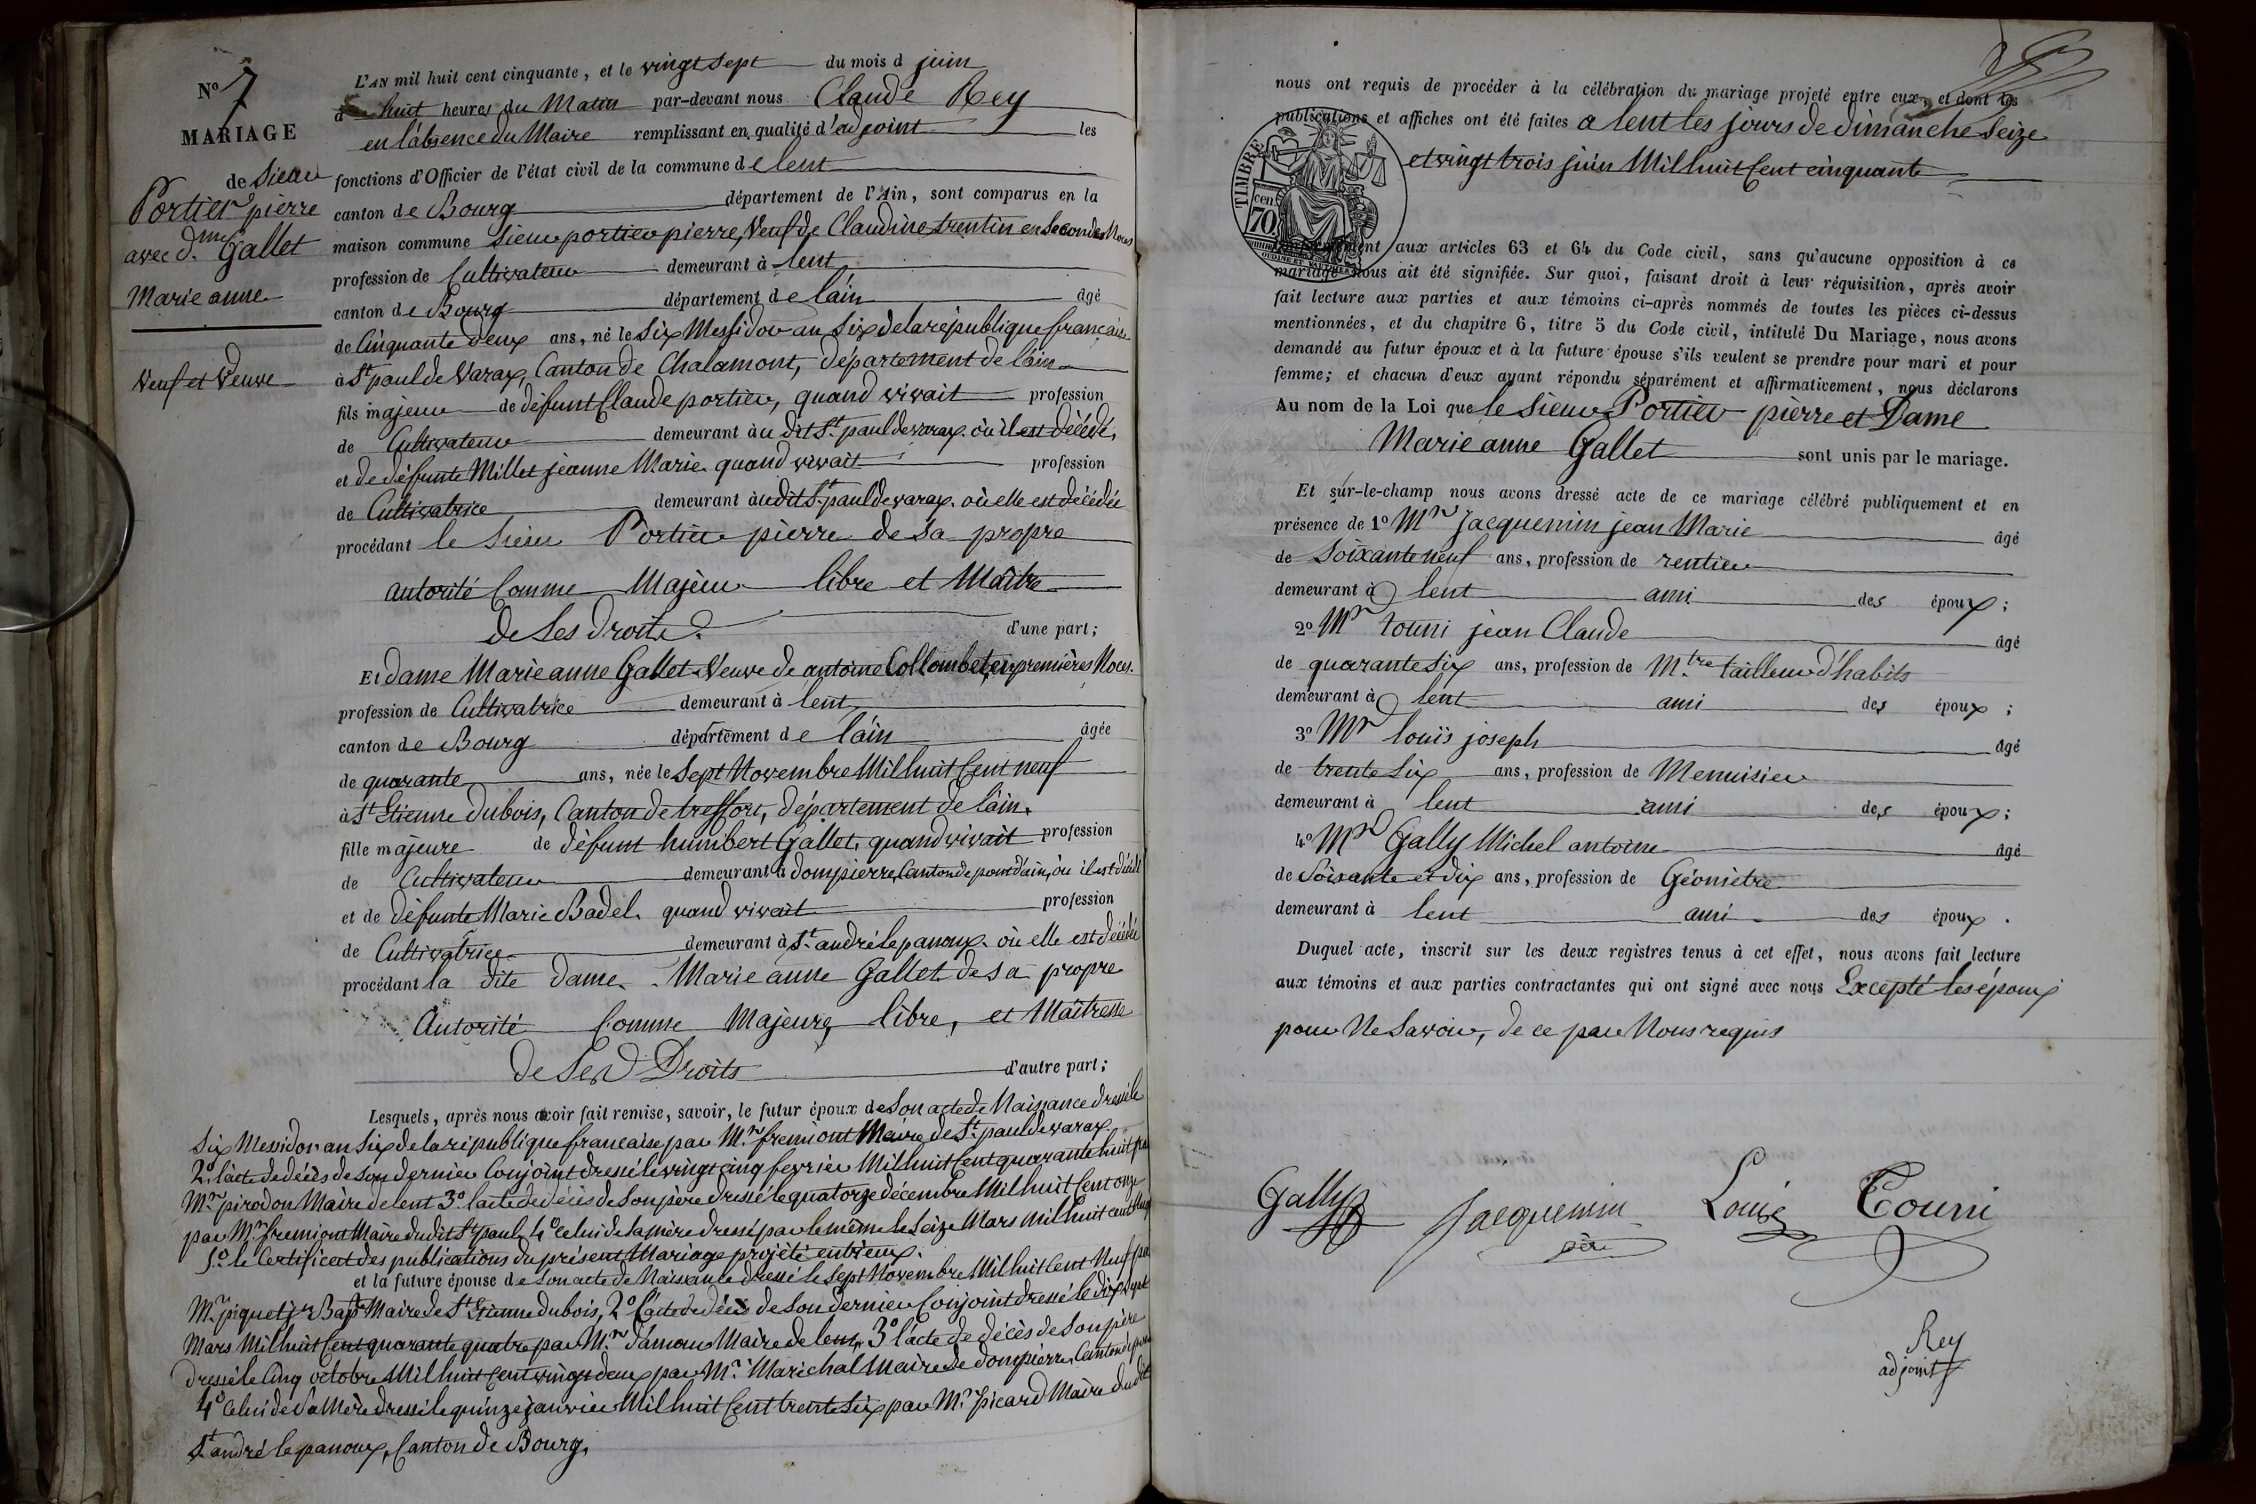 No 7
MARIAGE
de Sieur
Portier pierre
avec d.me Gallet
Marie anne
Veuf et Veuve
L'AN mil huit cent cinquante, et le vingt sept du mois d juin
à huit heures du Matin par-devant nous Claude Rey
en l'absence du Maire remplissant en qualité d'adjoint les
fonctions d'Officier de l'état civil de la commune de lent
canton de Bourg département de l'Ain, sont comparus en la
maison commune Sieur portier pierre, Veuf de Claudine trentin en Secondes Noces
profession de Cultivateur demeurant à lent
canton de Bourg département de l'ain âgé
de Cinquante deux ans, né le Six Messidor an Six de la république française
à St paul de Varax, Canton de Chalamont, département de l'ain
fils majeur de défunt Claude portier, quand vivait profession
de Cultivateur demeurant au dit St paul de varax. où il est décédé,
et de défunte Millet jeanne Marie quand vivait profession
de Cultivatrice demeurant audit St paul de varax. où elle est décédée
procédant le Sieur Portier pierre de sa propre
autorité Comme Majeur libre et Maître
de Ses droits. d'une part;
Et dame Marie anne Gallet Veuve de antoine Collombet, en premières Noces.
profession de Cultivatrice demeurant à lent
canton de Bourg département de l'ain âgée
de quarante ans, née le Sept Novembre Mil huit Cent neuf
à St Etienne dubois, Canton de treffort, département de l'ain.
fille majeure de défunt humbert Gallet, quand vivait profession
de Cultivateur demeurant à dompierre, Canton de pont d'ain, où il est décédé
et de défunte Marie Badel. quand vivait profession
de Cultivatrice demeurant à St. andré le panoux. où elle est décédée
procédant la dite dame Marie anne Gallet de sa propre
Autorité Comme Majeure, libre, et Maîtresse
de Ses Droits d'autre part;
Lesquels, après nous avoir fait remise, savoir, le futur époux de Son acte de Naissance dressé le
Six Messidor an Six de la république française par M.r fremiont Maire de St. paul de varax.
2.o l'acte de décès de Son dernier Conjoint dressé le vingt cinq fevrier Mil huit Cent quarante huit par
M.r pirodon Maire de lent 3.o l'acte de décès de Son père dressé le quatorze décembre Mil huit Cent onze
par M.r fremiont Maire du dit St paul, 4.o Celui de la mère dressé par le même le Seize Mars Mil huit cent
5.o le Certificat des publications du présent Mariage projété entr'eux.
et la future épouse de Son acte de Naissance dressé le Sept Novembre Mil huit Cent Neuf par
M.r piquet jn Bapt Maire de St Etienne dubois, 2.o l'acte de décès de Son dernier Conjoint dressé le dix Sept
Mars Mil huit Cent quarante quatre par M.r damour Maire de lent, 3.o l'acte de décès de Son père
dressé le Cinq octobre Mil huit Cent vingt deux par M.r Maréchal Maire de dompierre, Canton de pont
4.o Celui de Sa Mère dressé le quinze janvier Mil huit Cent trente Six par M.r picard Maire du dit
St andré le panoux, Canton de Bourg.
nous ont requis de procéder à la célébration du mariage projeté entre eux, et dont les
publications et affiches ont été faites à lent les jours de dimanche Seize
et vingt trois juin Mil huit Cent cinquante
TIMBRE
cen
70
conformément aux articles 63 et 64 du Code civil, sans qu'aucune opposition à ce
mariage nous ait été signifiée. Sur quoi, faisant droit à leur réquisition, après avoir
fait lecture aux parties et aux témoins ci-après nommés de toutes les pièces ci-dessus
mentionnées, et du chapitre 6, titre 5 du Code civil, intitulé Du Mariage, nous avons
demandé au futur époux et à la future épouse s'ils veulent se prendre pour mari et pour
femme; et chacun d'eux ayant répondu séparément et affirmativement, nous déclarons
Au nom de la Loi que le Sieur Portier pierre et Dame
Marie anne Gallet sont unis par le mariage.
Et sur-le-champ nous avons dressé acte de ce mariage célébré publiquement et en
présence de 1o Mr jacquemin jean Marie âgé
de Soixante neuf ans, profession de rentier
demeurant à lent ami des époux;
2o Mr touni jean Claude âgé
de quarante Six ans, profession de M.tre tailleur d'habits
demeurant à lent ami des époux;
3o Mr louis joseph âgé
de trente Six ans, profession de Menuisier
demeurant à lent ami des époux;
4o Mr Gally Michel antoine âgé
de Soixante et dix ans, profession de Géomètre
demeurant à lent ami des époux.
Duquel acte, inscrit sur les deux registres tenus à cet effet, nous avons fait lecture
aux témoins et aux parties contractantes qui ont signé avec nous Excepté les époux
pour Ne Savoir, de ce par Nous requis
Gally Jacquemin Louis Touni
père
Rey
adjoint